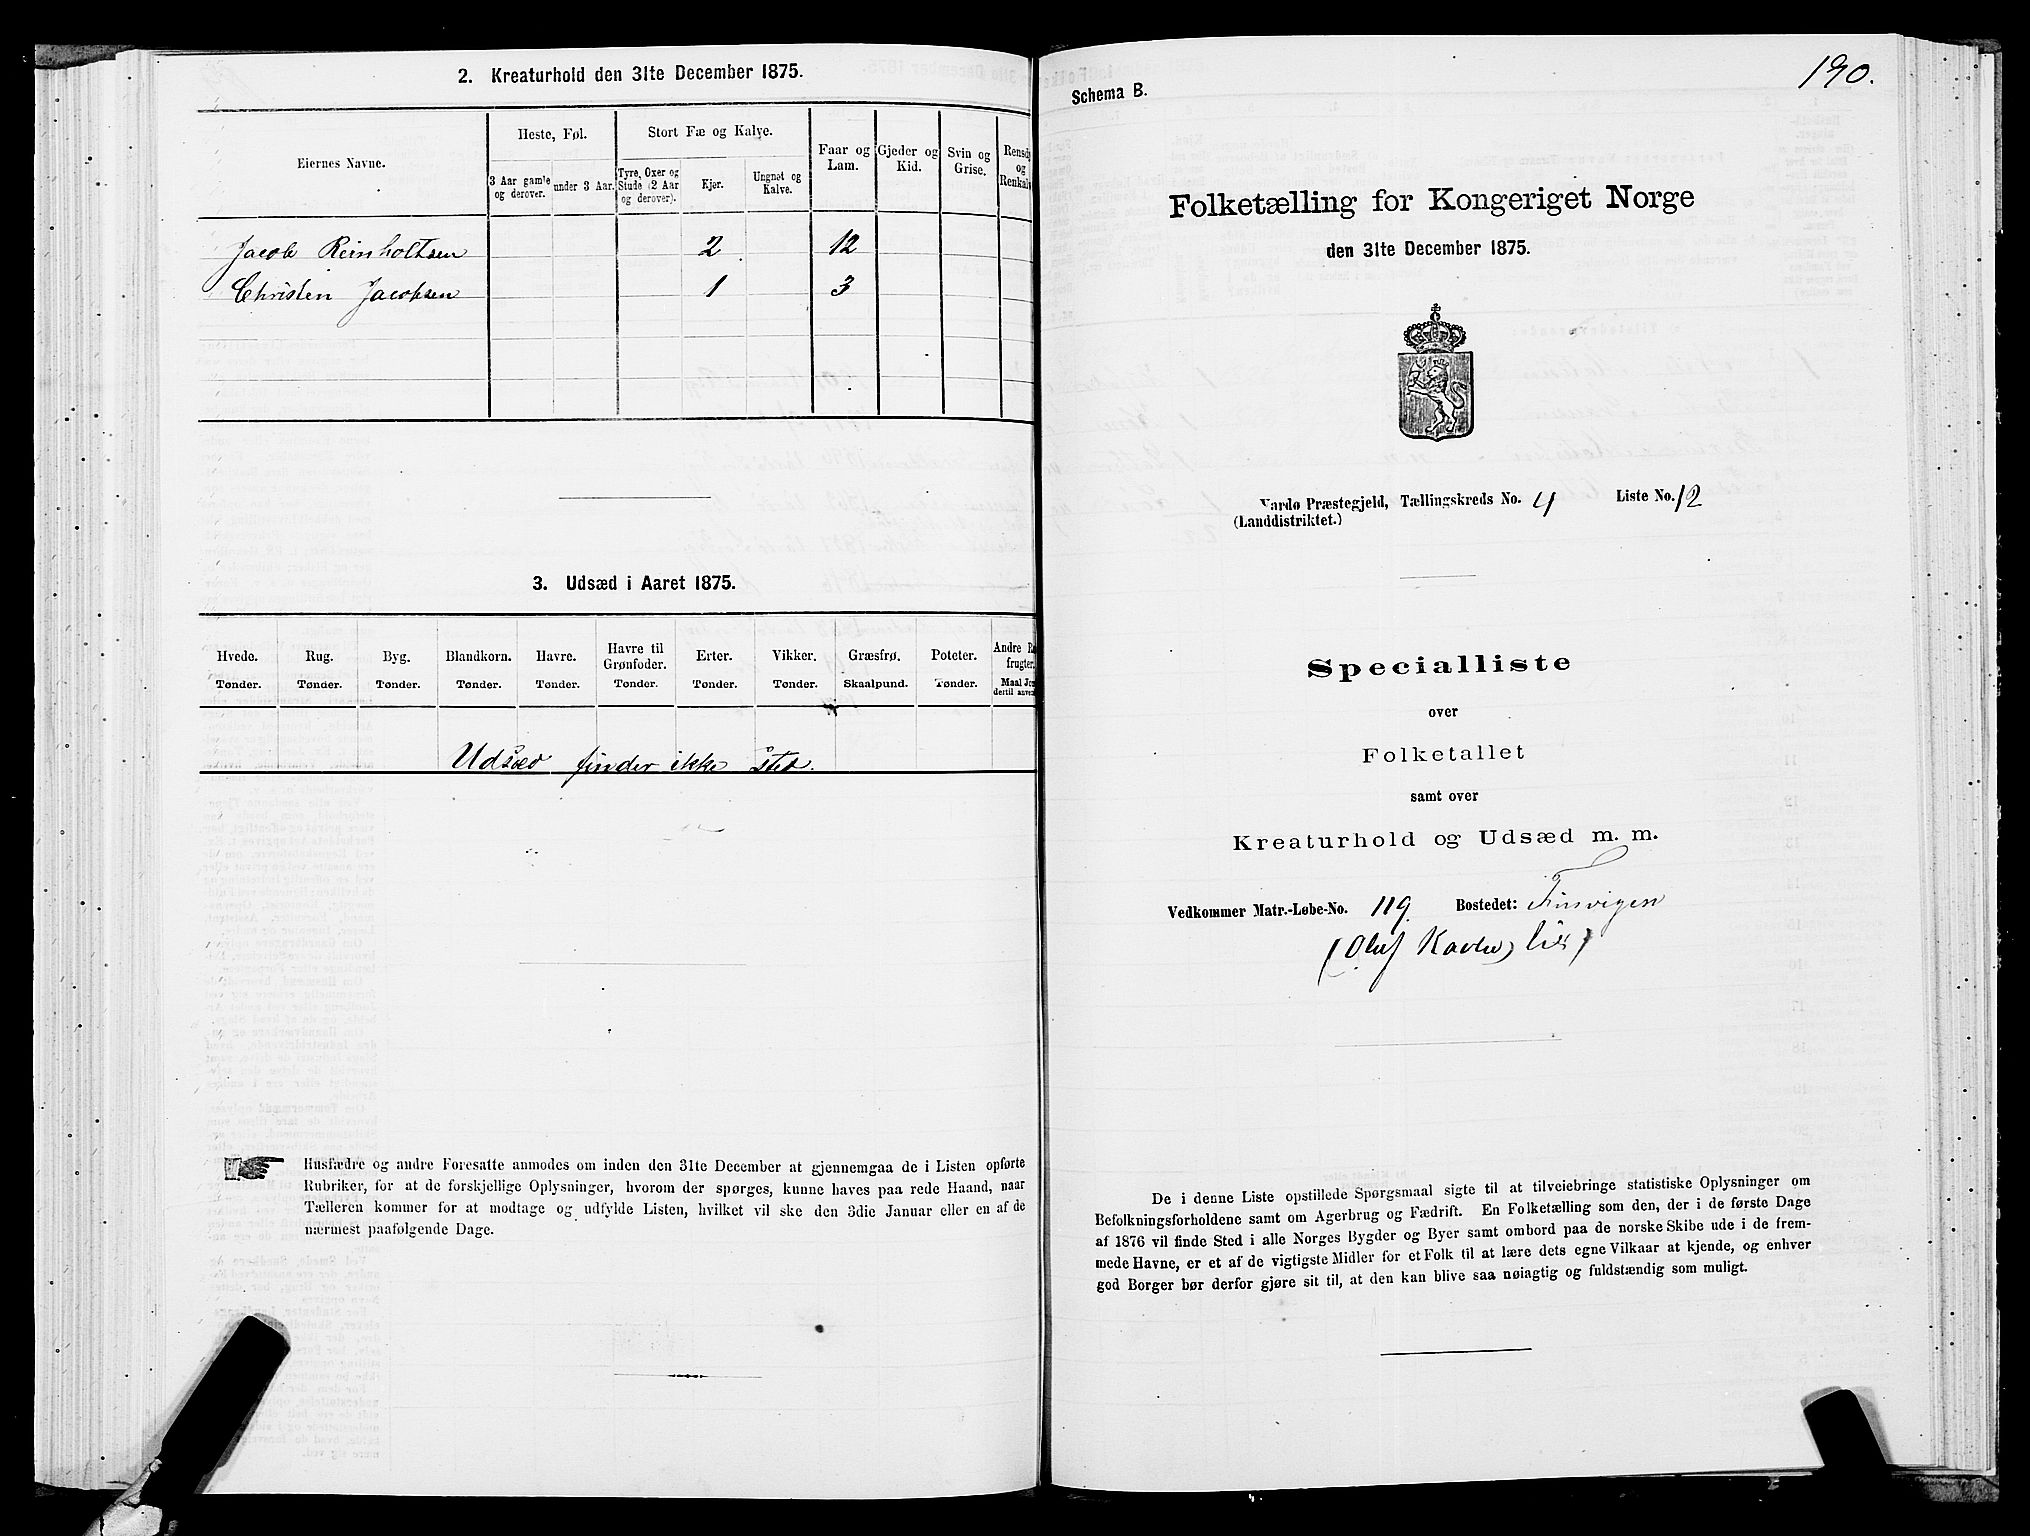 2. Kreaturhold den 31te December 1875.
Eiernes Navne.
Heste, Føl.
Stort Fæ og Kalve.
Faar og Lam.
Gjeder og Kid.
Svin og Grise.
3 Aar gamle og derover.
under 3 Aar.
Tyre, Oxer og Stude (2 Aar og derover).
Kjør.
Ungnøt og Kalve.
Jacob Reinholtsen 2 12
Christen Jacobsen 1 3
3. Udsæd i Aaret 1875.
Hvede. Rug. Byg. Blandkorn. Havre. Havre til Grønfoder. Erter. Vikker. Græsfrø. Poteter. Andre
Tønder. Tønder. Tønder. Tønder. Tønder. Tønder. Tønder. Tønder. Skaalpund. Tønder. Maal
Udsæd finder ikke sted.
Husfædre og andre Foresatte anmodes om inden den 31te December at gjennemgaa de i Listen opførte
Rubriker, for at de forskjellige Oplysninger, hvorom der spørges, kunne haves paa rede Haand, naar
Tælleren kommer for at modtage og udfylde Listen, hvilket vil ske den 3die Januar eller en af de
nærmest paafølgende Dage.
190.
Schema B.
Folketælling for Kongeriget Norge
den 31te December 1875.
Vardø Præstegjeld, Tællingskreds No. 4 Liste No. 12
(Landdistriktet.)
Specialliste
over
Folketallet
samt over
Kreaturhold og Udsæd m. m.
Vedkommer Matr.-Løbe-No. 119. Bostedet: Finvigen
(Oluf
De i denne Liste opstillede Spørgsmaal sigte til at tilveiebringe statistiske Oplysninger om
Befolkningsforholdene samt om Agerbrug og Fædrift. En Folketælling som den, der i de første Dage
af 1876 vil finde Sted i alle Norges Bygder og Byer samt ombord paa de norske Skibe ude i de frem-
mede Havne, er et af de vigtigste Midler for et Folk til at lære dets egne Vilkaar at kjende, og enhver
god Borger bør derfor gjøre sit til, at den kan blive saa nøiagtig og fuldstændig som muligt.